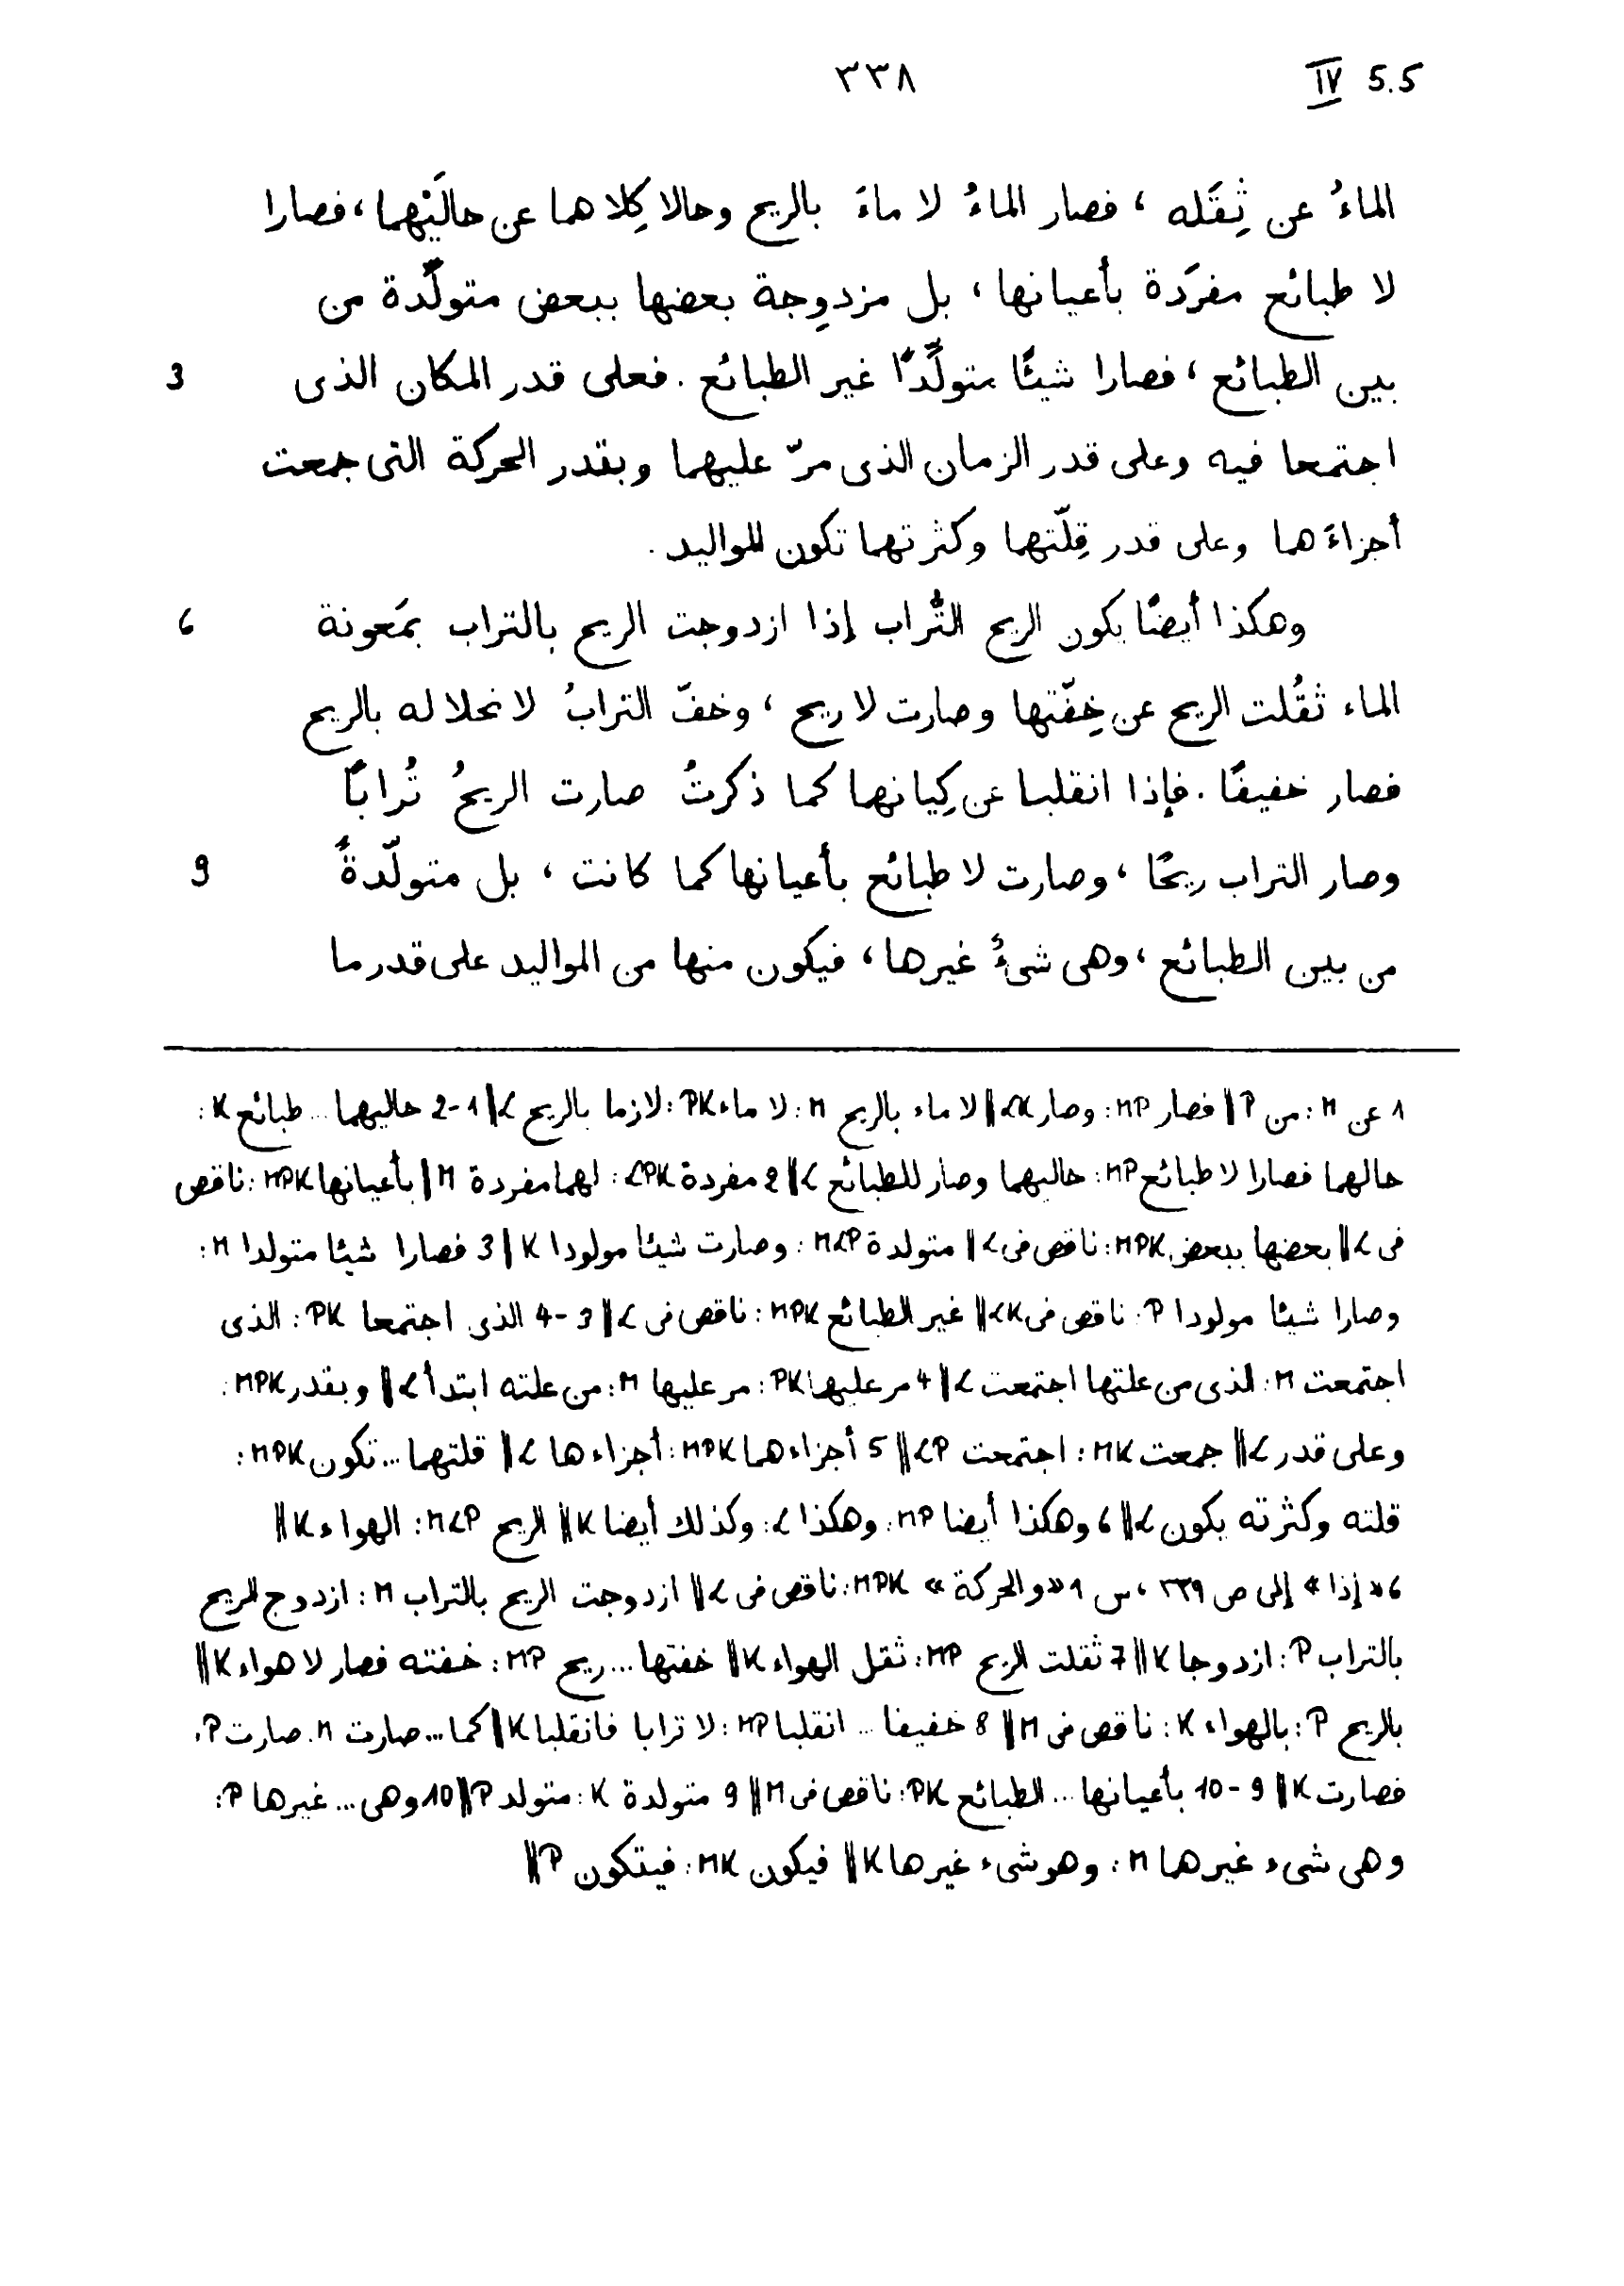 ٣٣٨ IV 5.5
الماءُ عن ثِقَله ، فصار الماءُ لا ماءَ بالريح وحالا كِلاهما عن حالَيْهما ، فصارا
لا طبائع مفرَدة بأعيانها ، بل مزدوِجة بعضها ببعض متولَّدة من
بين الطبائع ، فصارا شيئًا متولَّدًا غير الطبائع . فعلى قدر المكان الذى 3
اجتمعا فيه وعلى قدر الزمان الذى مرّ عليهما وبقدر الحركة التى جمعت
أجزاءَهما وعلى قدر قِلّتهما وكثرتهما تكون المواليد .
وهكذا أيضًا يكون الريح التُّراب إذا ازدوجت الريح بالتراب بمَعونة 6
الماء ثقُلت الريح عن خِفّتها وصارت لا ريح ، وخفّ الترابُ لانحلاله بالريح
فصار خفيفًا . فإذا انقلبا عن كِيانهما كما ذكرتُ صارت الريحُ تُرابًا
وصار التراب ريحًا ، وصارت لا طبائع بأعيانها كما كانت ، بل متولّدةً 9
من بين الطبائع ، وهى شىءٌ غيرها ، فيكون منها من المواليد على قدر ما
1 عن M : من P ‖ فصار MP : وصار LK ‖ لا ماء بالريح M : لا ماء PK : لازما بالريح L ‖ 1-2 حاليهما ... طبائع K :
حالهما فصارا لا طبائع MP : حاليهما وصار للطبائع L ‖ 2 مفردة LPK : لهما مفردة M ‖ بأعيانها MPK : ناقص
فى L ‖ بعضها ببعض MPK : ناقص فى L ‖ متولدة MLP : وصارت شيئا مولودا K ‖ 3 فصارا شيئا متولدا M :
وصارا شيئا مولودا P : ناقص فى LK ‖ غير الطبائع MPK : ناقص فى L ‖ 3-4 الذى اجتمعا PK : الذى
اجتمعت M : الذى من علتها اجتمعت L ‖ 4 مر عليهما PK : مر عليها M : من علته ابتدأ L ‖ وبقدر MPK :
وعلى قدر L ‖ جمعت MK : اجتمعت LP ‖ 5 أجزاءهما MPK : أجزاءها L ‖ قلتهما ... تكون MPK :
قلته وكثرته يكون L ‖ 6 وهكذا أيضا MP : وهكذا L : وكذلك أيضا K ‖ الريح MLP : الهواء K ‖
6 « إذا » إلى ص ٣٣٩ ، س 1 « والحركة » MPK : ناقص فى L ‖ ازدوجت الريح بالتراب M : ازدوج الريح
بالتراب P : ازدوجا K ‖ 7 ثقلت الريح MP : ثقل الهواء K ‖ خفتها ... ريح MP : خفته فصار لا هواء K ‖
بالريح P : بالهواء K : ناقص فى M ‖ 8 خفيفا ... انقلبا MP : لا ترابا فانقلبا K ‖ كما ... صارت M : صارت P :
فصارت K ‖ 9-10 بأعيانها ... الطبائع PK : ناقص فى M ‖ 9 متولدة K : متولد P ‖ 10 وهى ... غيرها P :
وهى شىء غيرهما M : وهو شىء غيرها K ‖ فيكون MK : فيتكون P ‖